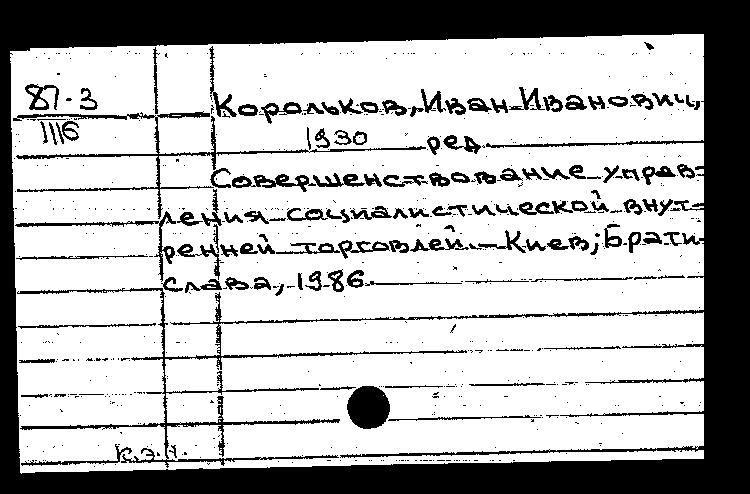 87-3
1116
Корольков, Иван Иванович,
1930 ред.
Совершенствование управ-
ления социалистической внут-
ренней торговлей. – Киев; Брати-
слава, 1986.
к.э.н.